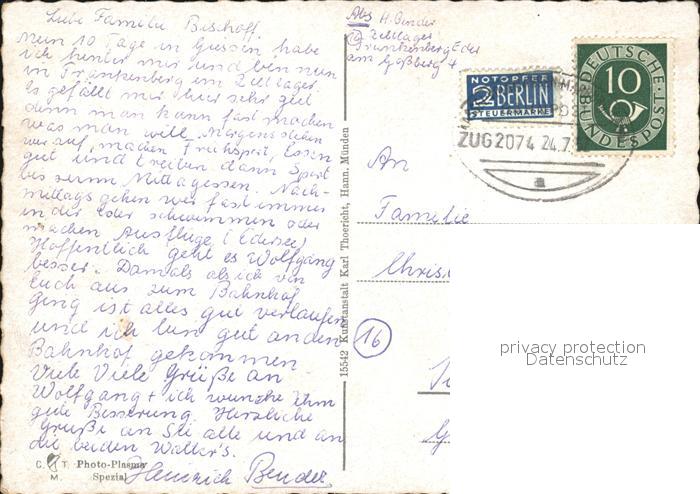 Liebe Familie Bischoff.
Mein 10 Tage in Giessen habe
ich hinter mir und bin nun
in Frankenberg im Zeltlager.
Es gefällt mir hier sehr gut
denn man kann fast machen
was man will. Morgens stehen
wir auf, machen Frühsport, Essen
gut und treiben dann Sport
bis zum Mittagessen. Nach-
mittags gehen wir fast immer
in der Eder schwimmen oder
machen Ausflüge (Edersee)
Hoffentlich geht es Wolfgang
besser. Damals als ich von
Euch aus zum Bahnhof
ging ist alles gut verlaufen
und ich bin gut an den
Bahnhof gekommen
Viele Viele Grüße an
Wolfgang + ich wünsche Ihm
gute Besserung. Herzliche
Grüße an Sie alle und an
die beiden Walter's.
Heinrich Bender
C. T. M.
Photo-Plasma
Spezial
15542 Kunstanstalt Karl Thoericht, Hann. Münden
Abs H. Bender
Zeltlager
Frankenberg Eder
am Goßberg 4
NOTOPFER
2 BERLIN
STEUERMARKE
DEUTSCHE
BUNDESPOST
10
ZUG 2074 24.7.
a
An
Familie
16
privacy protection
Datenschutz